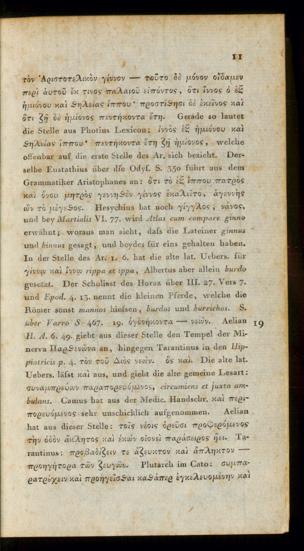 11
τὸν Ἀριστοτελικὸν γίννον — τοῦτο δὲ μόνον οἴδαμεν
περὶ ἀυτοῦ ἔκ τινος παλαιοῦ εἰπόντος, ὅτι ἴννος ὁ ἐξ
ἡμιόνου καὶ θηλείας ἵππου· προστίθησι δὲ ἐκεῖνος καὶ
ὅτι ζῇ δὲ ἡμίονος πεντήκοντα ἔτη. Gerade so lautet
die Stelle aus Photius Lexicon: ἰννὸς ἐξ ἡμιόνου καὶ
θηλείας ἵππου· πεντήκοντα ἔτη ζῇ ἡμίονος, welche
offenbar auf die erste Stelle des Ar. sich bezieht. Der-
selbe Eustathius über dſs Odyſſ. S. 350 führt aus dem
Grammatiker Aristophanes an: ὅτι τὸ ἐξ ἵππου πατρὸς
καὶ ὄνου μητρὸς γεννηθὲν γίννος ἐκαλεῖτο, ἀγεννὴς
ὢν τὸ μέγεθος. Hesychius hat noch γίγγλος, νάνος,
und bey Martialis VI. 77. wird Atlas cum compare ginno
erwähnt; woraus man sieht, daſs die Lateiner ginnus
und hinnus gesagt, und beydes für eins gehalten haben.
In der Stelle des Ar. 1. 6. hat die alte lat. Uebers. für
γίννῳ καὶ ἴννῳ rippa et ippa, Albertus aber allein burdo
gesetzt. Der Scholiast des Horaz über III. 27. Vers 7.
und Epod. 4. 13. nennt die kleinen Pferde, welche die
Römer sonst mannios hieſsen, burdos und burrichos. S.
über Varro S. 467. 19. ὀγδοήκοντα — νεών. Aelian
19
H. A. 6. 49. giebt aus dieser Stelle den Tempel der Mi-
nerva Παρθενῶνα an, hingegen Tarantinus in den Hip-
phiatricis p. 4. τὸν τοῦ Διὸς νεών. ὃς καὶ. Die alte lat.
Uebers. läſst καὶ aus, und giebt die alte gemeine Lesart:
συναμπρεύων παραπορευόμενος, circumiens et juxta am-
bulans. Camus hat aus der Medic. Handschr. καὶ περι-
πορευόμενος sehr unschicklich aufgenommen. Aelian
hat aus dieser Stelle: τοῖς νέοις ὀρεῦσι προφερόμενος
τὴν ὁδὸν ἄκλητος καὶ ἑκὼν οἱονεὶ παράσειρος ᾔει. Ta-
rantinus: προβαδίζειν τε ἄζευκτον καὶ ἄπληκτον —
προηγήτορα τῶν ζευγῶν. Plutarch im Cato: συμπα-
ρατρέχειν καὶ προηγεῖσθαι καθάπερ ἐγκελευομένην καὶ